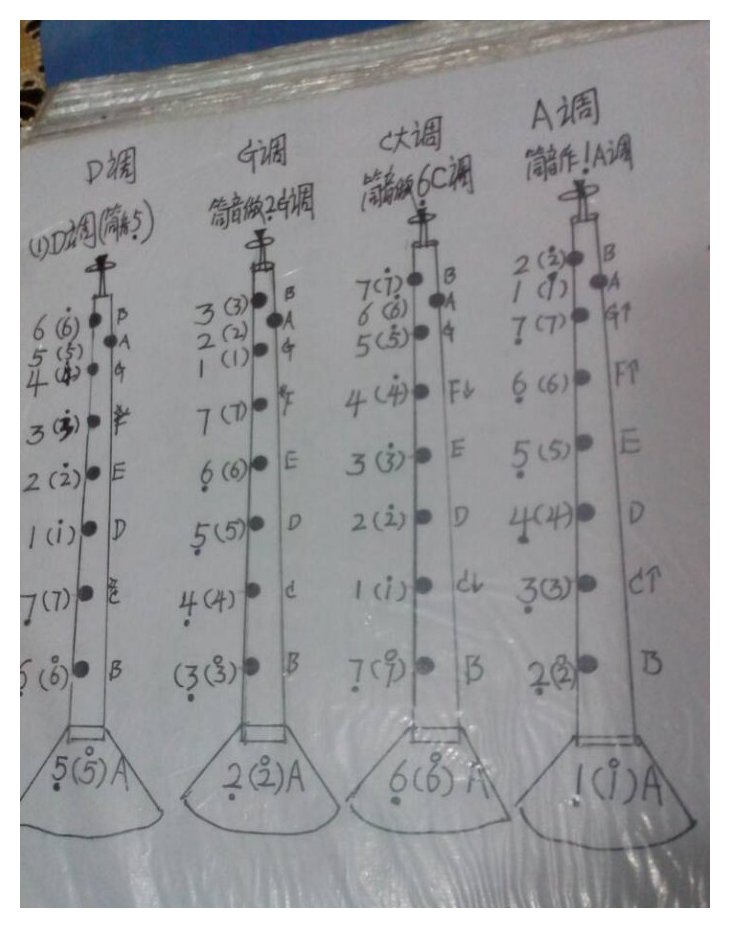 D调
(1)D调(筒音5̣)
6 (6̇) B
5 (5̇) A
4 (4̇) G
3 (3̇) #F
2 (2̇) E
1 (i̇) D
7̣ (7) #C
6̣ (6̊) B
5̣ (5̊) A
G调
筒音做2̣G调
3 (3) B
2 (2) A
1 (1) G
7 (7) #F
6̣ (6) E
5̣ (5) D
4̣ (4) C
(3̣ (3̊) B
2̣ (2̊) A
C大调
筒音做6̣C调
7 (7̇) B
6 (6̇) A
5 (5̇) G
4 (4̇) F↓
3 (3̇) E
2 (2̇) D
1 (i̇) C↓
7̣ (7̊) B
6̣ (6̊) A
A调
筒音作1̣A调
2 (2̇) B
1 (1̇) A
7̣ (7) G↑
6̣ (6) F↑
5̣ (5) E
4̣ (4) D
3̣ (3) C↑
2̣ (2̊) B
1̣ (1̊) A